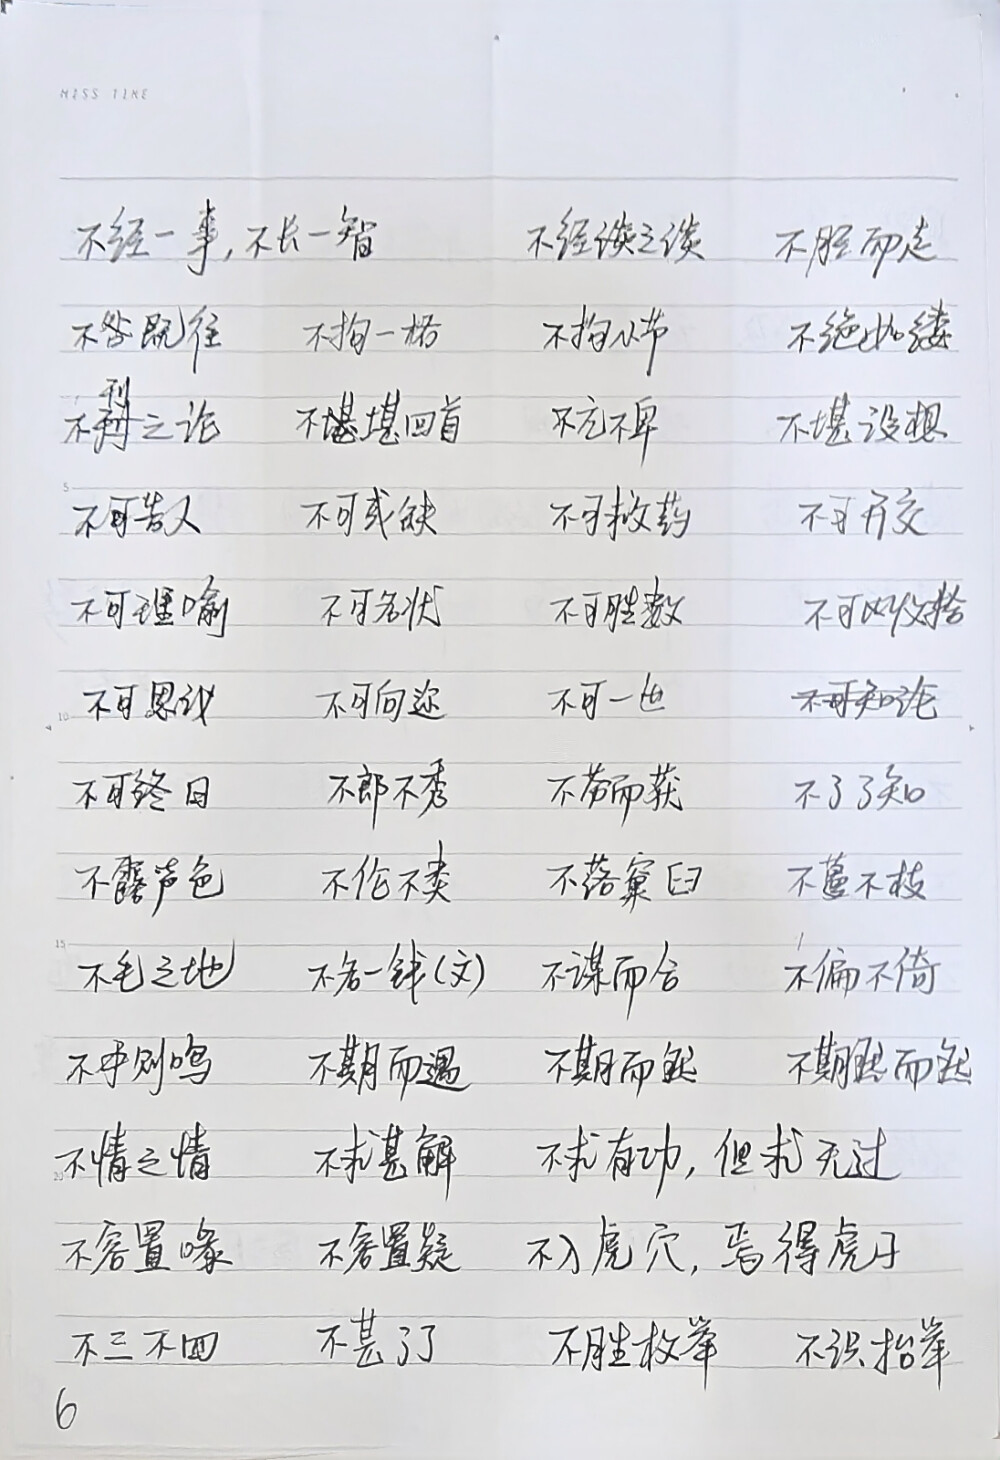 MISS TIME
不经一事,不长一智 不经谈之谈 不胫而走
不咎既往 不拘一格 不拘小节 不绝如缕
不刊之论 不堪堪回首 不亢不卑 不堪设想
5
不可告人 不可或缺 不可救药 不可开交
不可理喻 不可名状 不可胜数 不可收拾
不可思议 不可向迩 不可一世 不可知论
10
不可终日 不郎不秀 不劳而获 不了了知
不露声色 不伦不类 不落窠臼 不蔓不枝
15
不毛之地 不名一钱(文) 不谋而合 不偏不倚
不平则鸣 不期而遇 不期而然 不期然而然
不情之情 不求甚解 不求有功,但求无过
20
不容置喙 不容置疑 不入虎穴,焉得虎子
不三不四 不甚了了 不胜枚举 不识抬举
6